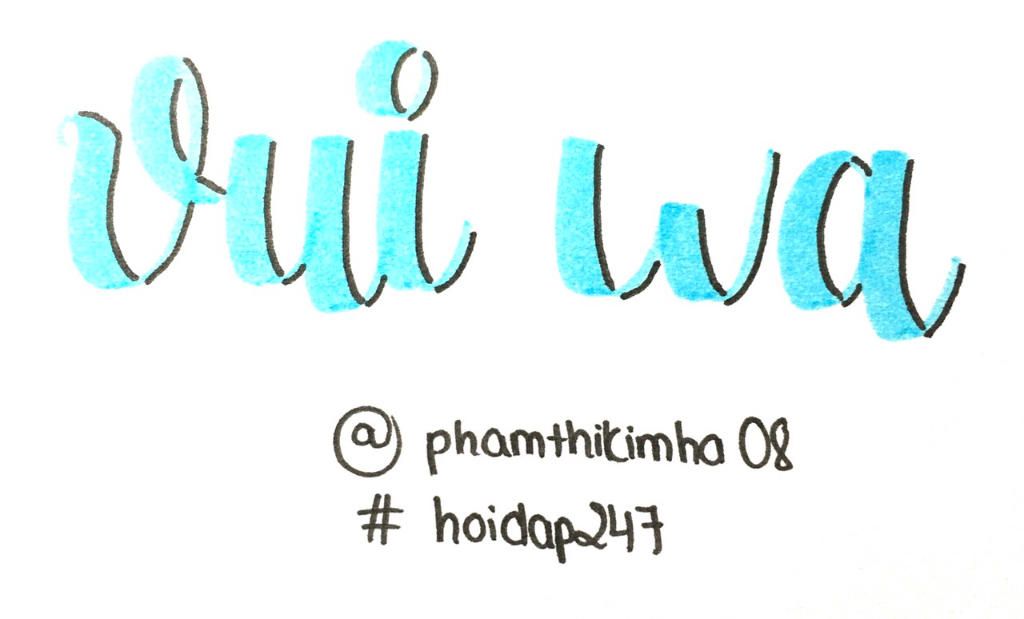 vui wa
@ phamthikimha 08
# hoidap247